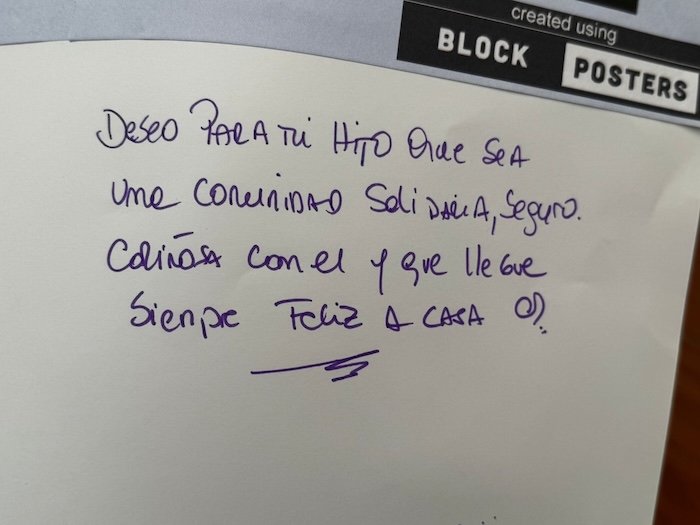 created using
BLOCK POSTERS
DESEO PARA TU HIJO QUE SEA
UNA COMUNIDAD SOLIDARIA, Seguro.
CARIÑOSA con el y que llegue
Sienpre FELIZ A CASA